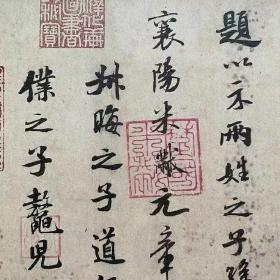 題以示兩姓之子孫
襄陽米黻元章
叔晦之子道
僕之子鼇兒